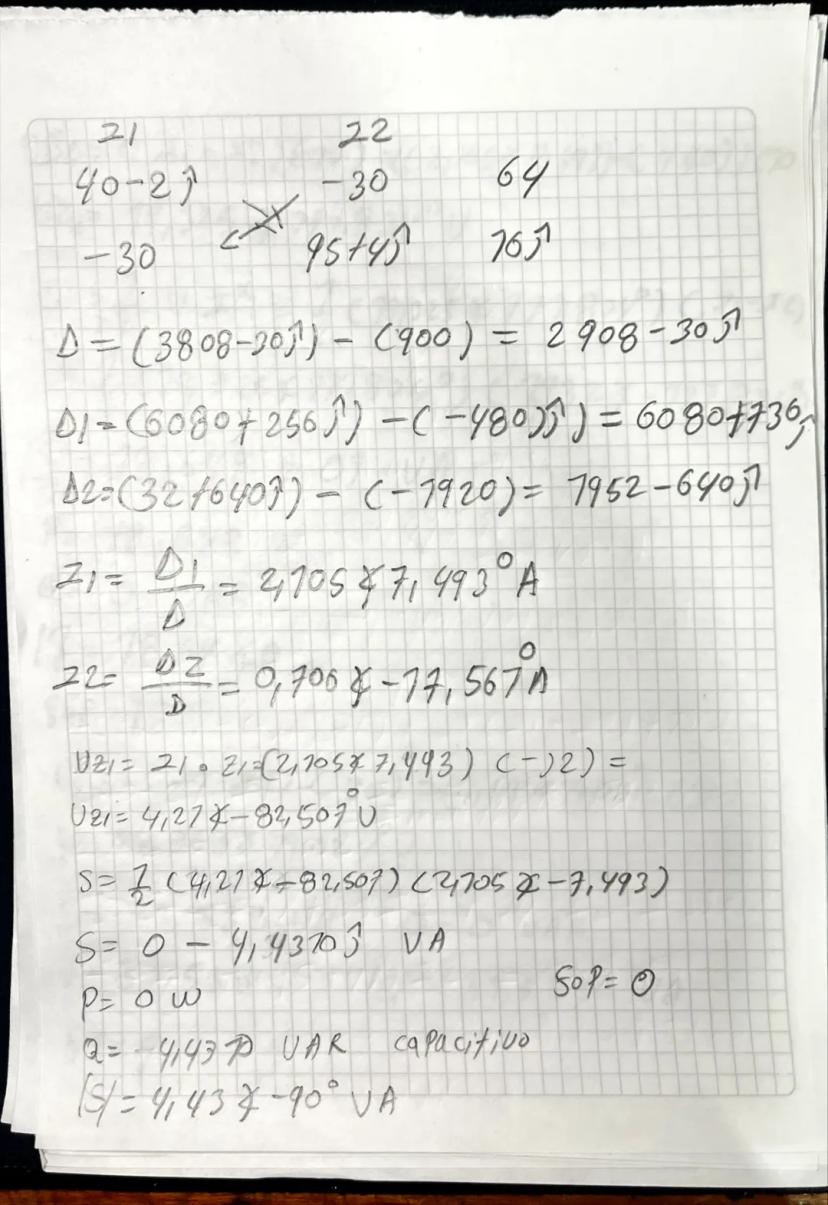 21 22
40-2j -30 64
-30 95+4j 16j
Δ = (3808-30j) - (900) = 2908-30j
Δ1 = (6080+256j) - (-480j) = 6080+736j
Δ2 = (32+640j) - (-1920) = 1952-640j
I1 = Δ1/Δ = 2,105∡7,493° A
I2 = Δ2/Δ = 0,706∡-17,567° A
Uz1 = I1 • Z1 = (2,105∡7,493) (-j2) =
Uz1 = 4,21∡-82,507° V
S = 1/2 (4,21∡-82,507) (2,105∡-7,493)
S = 0 - 4,4310j VA
P = 0 W fop = 0
Q = -4,431 VAR capacitivo
|S| = 4,43∡-90° VA